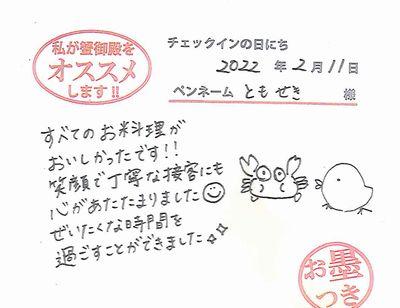 私が蟹御殿を
オススメ
します!!
チェックインの日にち
2022 年 2 月 11 日
ペンネーム ともせき 様
すべてのお料理が
おいしかったです!!
笑顔で丁寧な接客にも
心があたたまりました
ぜいたくな時間を
過ごすことができました
お墨
つき